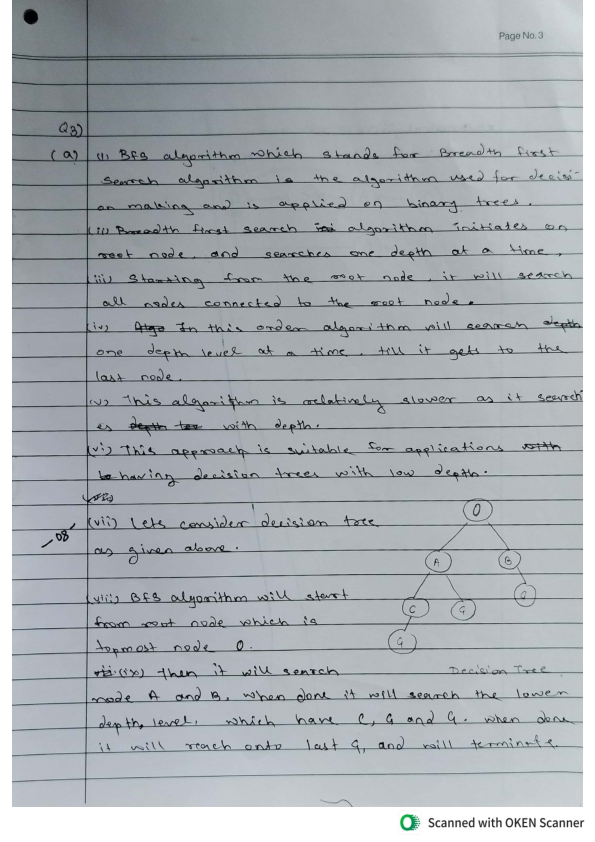 Page No. 3
Q3)
(a) (i) BFS algorithm which stands for Breadth first
search algorithm is the algorithm used for decisi-
on making and is applied on binary trees.
(ii) Breadth first search algorithm initiates on
root node, and searches one depth at a time.
(iii) Starting from the root node, it will search
all nodes connected to the root node.
(iv) In this order algorithm will search depth
one depth level at a time, till it gets to the
last node.
(v) This algorithm is relatively slower as it search
es with depth.
(vi) This approach is suitable for applications with
having decision trees with low depth.
(vii) Lets consider decision tree
08
as given above.
O
A B
C G G
G
(viii) BFS algorithm will start
from root node which is
topmost node O.
Decision Tree
(ix) Then it will search
node A and B, when done it will search the lower
depth level, which have C, G and G. when done
it will reach onto last G, and will terminate
Scanned with OKEN Scanner